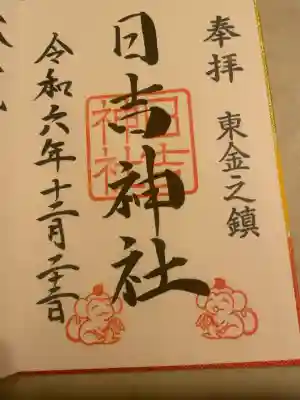 奉拝
東金之鎮
日吉神社
日吉神社
令和六年十二月二十三日